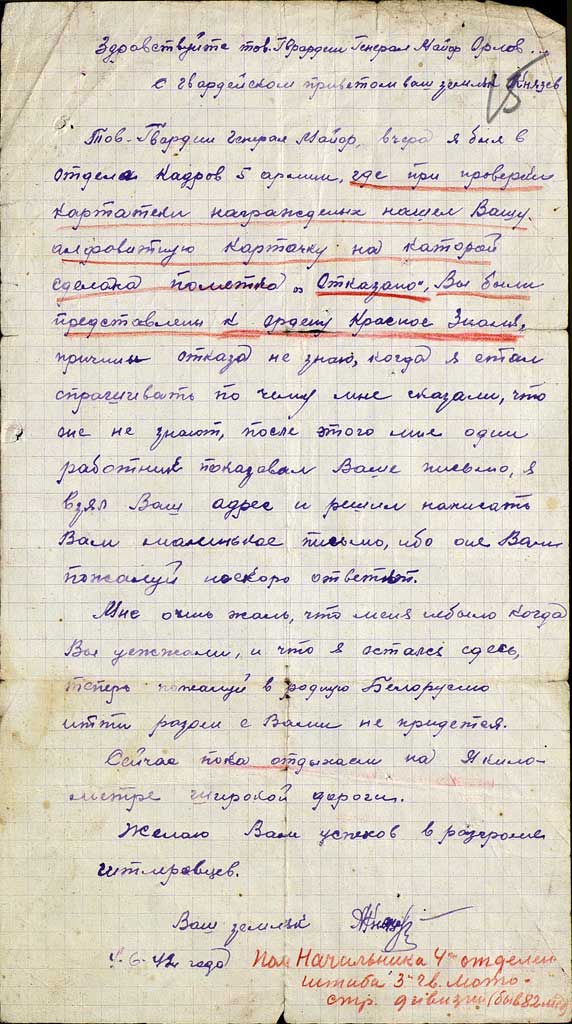 Здравствуйте тов. Гвардии Генерал Майор Орлов...
с гвардейском приветом ваш земляк Князев
Тов. Гвардии Генерал Майор, вчера я был в
отдела Кадров 5 армии, где при проверки
картатеки награжденых нашел Вашу
алфовитную карточку на каторой
сделана пометка „Отказано", Вы были
представлены к ордену Красное Знамя,
причины отказа не знаю, когда я стал
спрашивать по чему мне сказали, что
не знают, после этого мне один
работник показовал Ваше письмо, я
взял Ваш адрес и решил написать
Вам маленькое письмо, ибо они Вам
пожалуй нескоро ответят.
Мне очень жаль, что меня небыло когда
Вы уежжали, и что я остался сдесь,
теперь пожалуй в родную Белорусию
итти разом с Вами не придется.
Сейчас пока отдыхаем на кило-
метре широкой дороги.
Желаю Вам успехов в разгроме
гитлеровцев.
Ваш земляк
4.6.42 года
Пом Начальника 4го отделен
штаба 3й гв. мото-
стр. дивизии (быв 82 мсд)